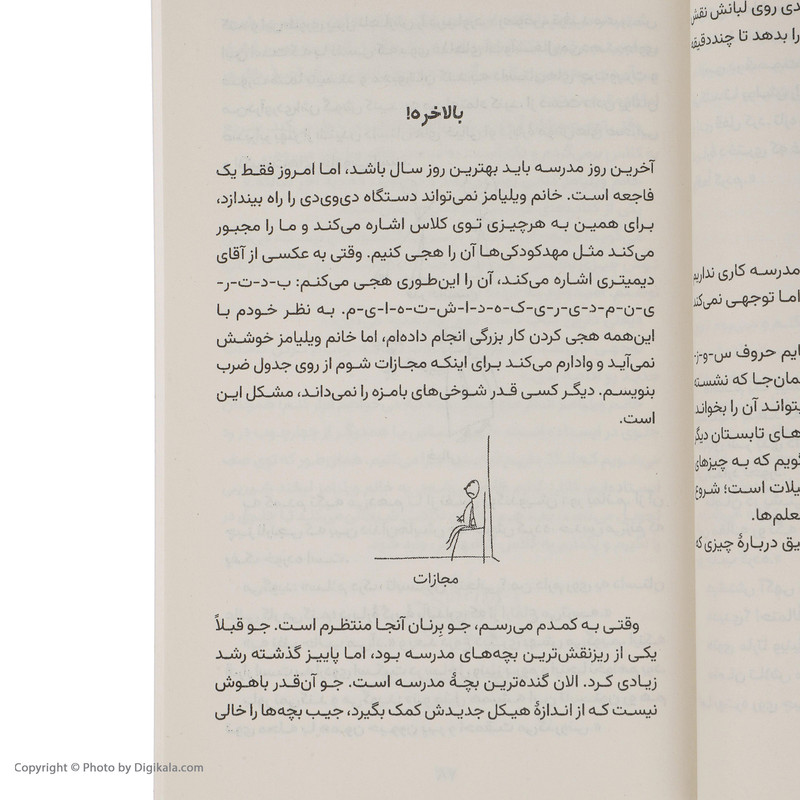 بالاخره!
آخرین روز مدرسه باید بهترین روز سال باشد، اما امروز فقط یک
فاجعه است. خانم ویلیامز نمی‌تواند دستگاه دی‌وی‌دی را راه بیندازد،
برای همین به هرچیزی توی کلاس اشاره می‌کند و ما را مجبور
می‌کند مثل مهدکودکی‌ها آن را هجی کنیم. وقتی به عکسی از آقای
دیمیتری اشاره می‌کند، آن را این‌طوری هجی می‌کنم: ب-د-ت-ر-
ی-ن-م-د-ی-ر-ی-ک-ه-د-ا-ش-ت-ه-ا-ی-م. به نظر خودم با
این‌همه هجی کردن کار بزرگی انجام داده‌ام، اما خانم ویلیامز خوشش
نمی‌آید و وادارم می‌کند برای اینکه مجازات شوم از روی جدول ضرب
بنویسم. دیگر کسی قدر شوخی‌های بامزه را نمی‌داند، مشکل این
است.
مجازات
وقتی به کمدم می‌رسم، جو بِرنان آنجا منتظرم است. جو قبلاً
یکی از ریزنقش‌ترین بچه‌های مدرسه بود، اما پاییز گذشته رشد
زیادی کرد. الان گنده‌ترین بچهٔ مدرسه است. جو آن‌قدر باهوش
نیست که از اندازهٔ هیکل جدیدش کمک بگیرد، جیب بچه‌ها را خالی
دی روی لبانش نقش
را بدهد تا چنددقیقه
مدرسه کاری نداریم
اما توجهی نمی‌کند
ایم حروف س-و-ز-
همان‌جا که نشسته
بتواند آن را بخواند
های تابستان دیگر
گویم که به چیزهای
یلات است؛ شروع
علم‌ها.
یق دربارهٔ چیزی که
Copyright © Photo by Digikala.com